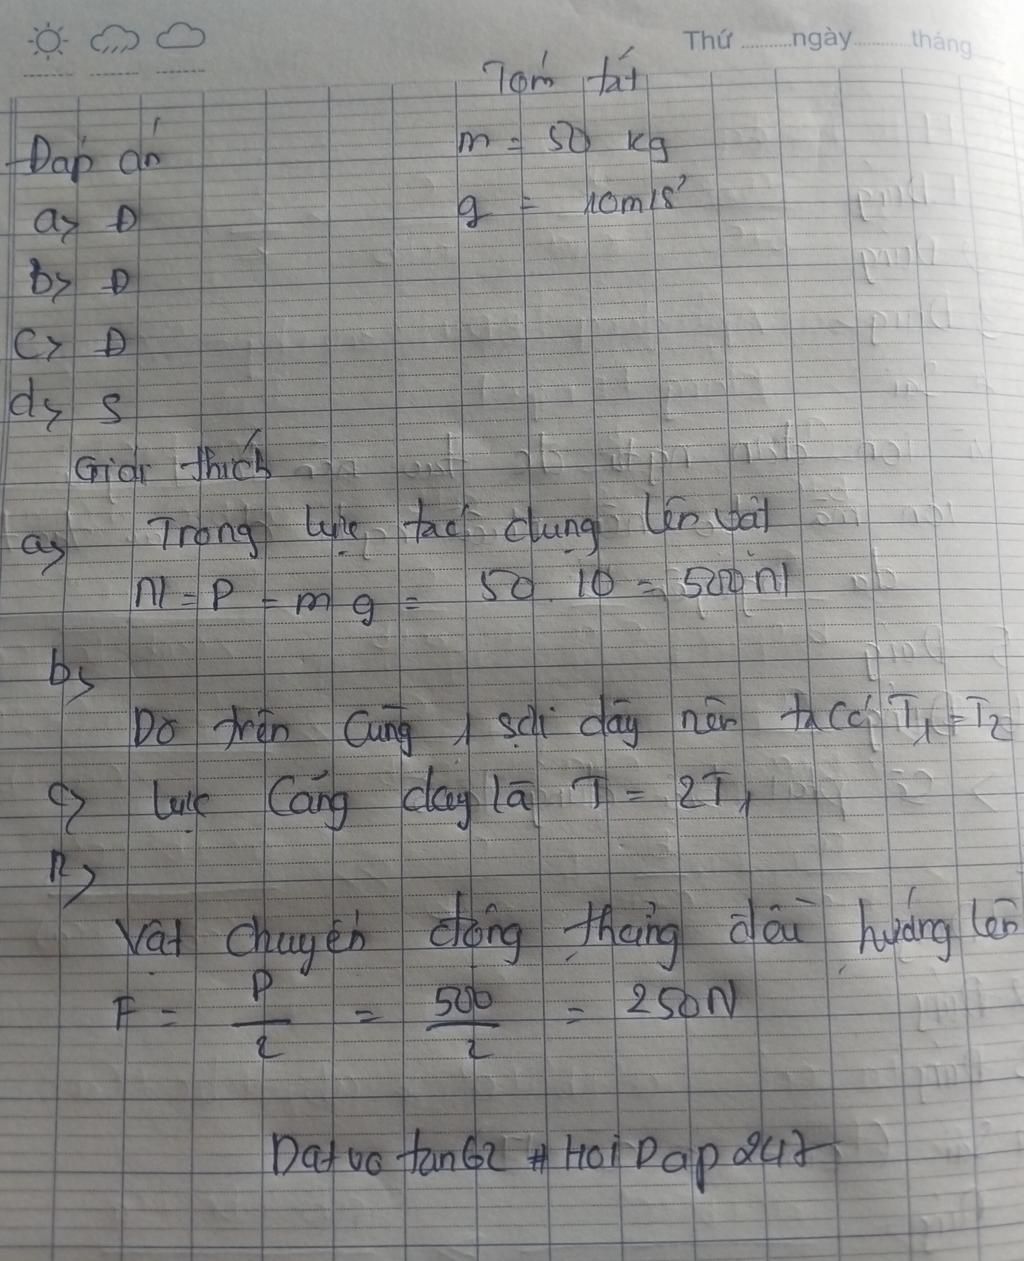 Thứ ngày tháng
Tóm tắt
Đáp án
m = 50 kg
a> Đ
g = 10m/s²
b> Đ
c> Đ
d> S
Giải thích
a> Trọng lực tác dụng lên vật
N = P = mg = 50.10 = 500N
b>
Do trên cùng 1 sợi dây nên ta có T₁ = T₂
c> Lực căng dây là T = 2T₁
Vật chuyển động thẳng đều hướng lên
F = P/2 = 500/2 = 250N
Datvotan62 # HoiDap247